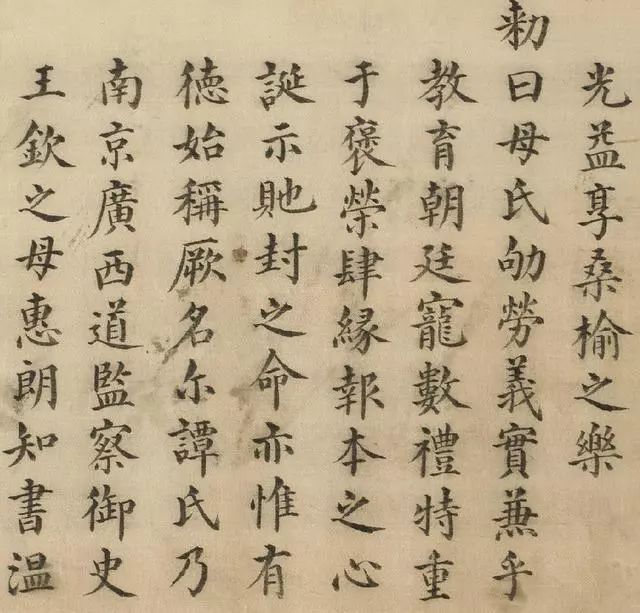 光益享桑榆之樂
勑曰母氏劬勞義實兼乎
教育朝廷寵數禮特重
于褒榮肆緣報本之心
誕示貤封之命亦惟有
德始稱厥名尔譚氏乃
南京廣西道監察御史
王欽之母惠朗知書温